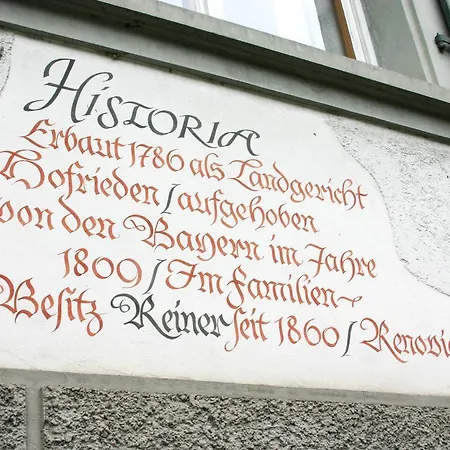 Historia
Erbaut 1786 als Landgericht
Hofrieden / aufgehoben
von den Bayern im Jahre
1809 / Im Familien-
Besitz Reiner seit 1860 / Renovie